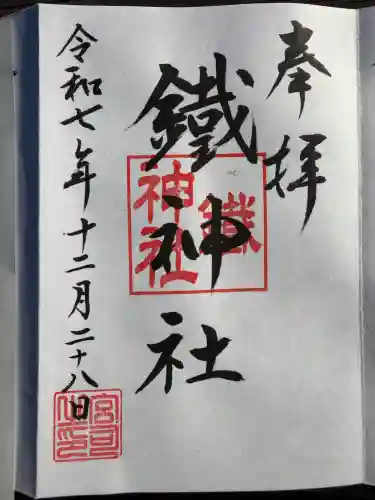 奉拝
鐵神社
鐵
神社
令和七年十二月二十八日
宮司
之印